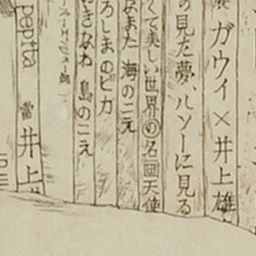 展 ガウィ×井上雄
の見た夢、ルソーに見る
くて美しい世界の名画天使
なまた 海のこえ
ろしまのピカ
きなわ 島のこえ
pepita 井上